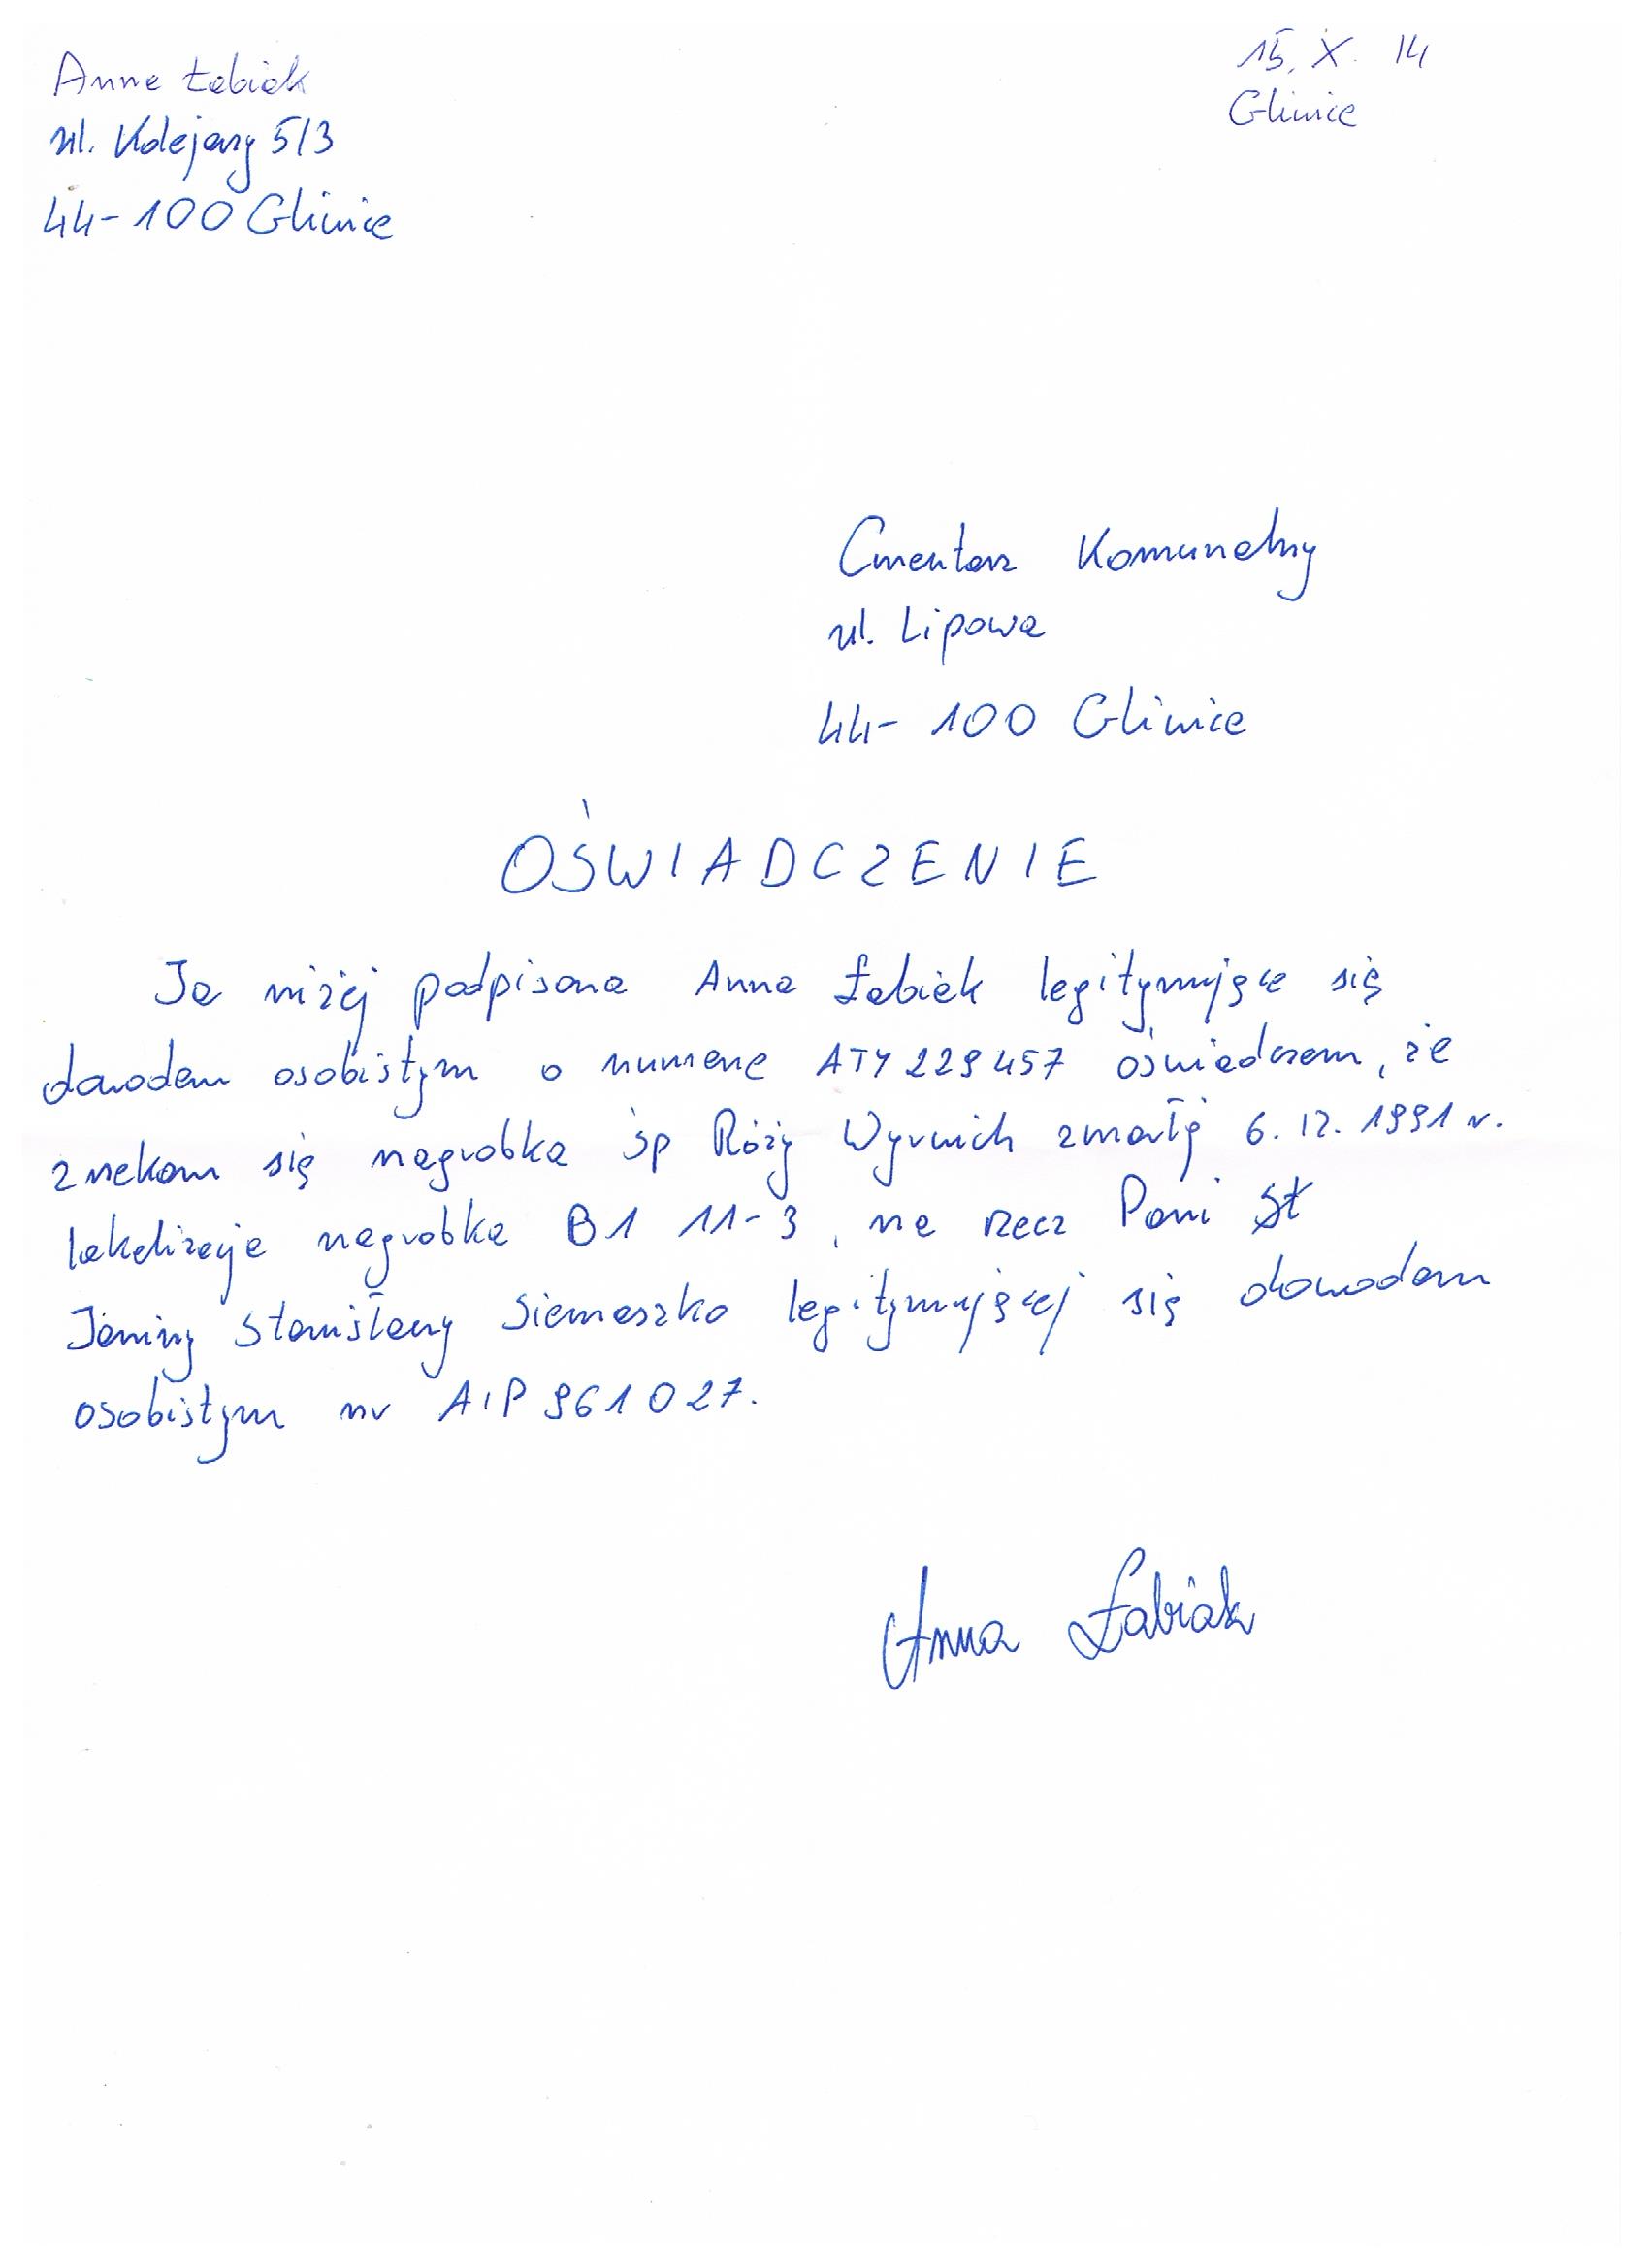 Anna Łabiak
15. X. 14
Gliwice
ul. Kolejowy 5/3
44-100 Gliwice
Cmentarz Komunalny
ul. Lipowa
44-100 Gliwice
OŚWIADCZENIE
Ja niżej podpisana Anna Łabiak legitymująca się
dowodem osobistym o numerze ATY 229457 oświadczam, że
zrzekam się nagrobka śp Róży zmarłej 6.12.1991 r.
lokalizacja nagrobka B1 11-3, na rzecz Pani
Janiny Stanisławy Siemaszko legitymującej się dowodem
osobistym nr AIP 961027.
Anna Łabiak